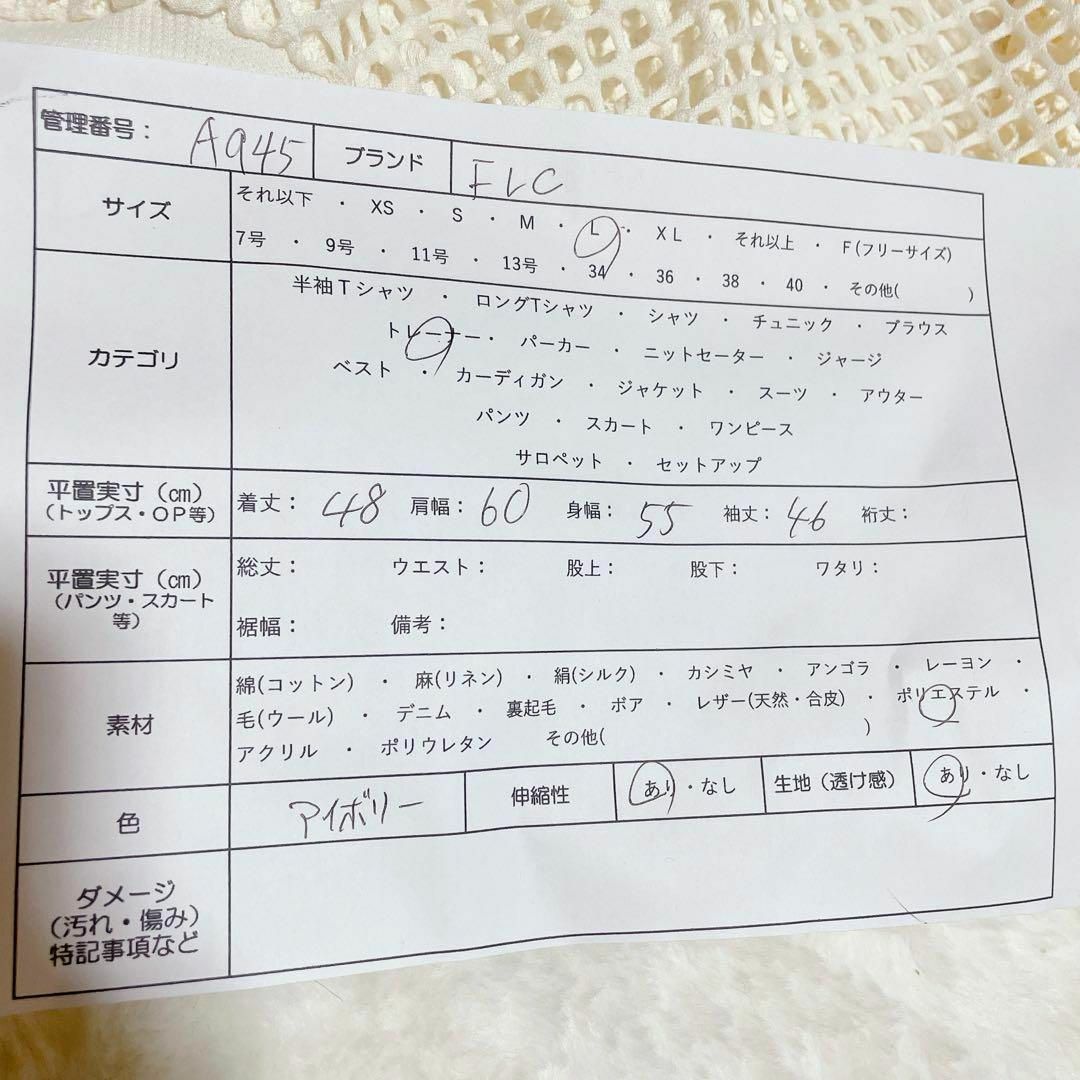 管理番号： A945 ブランド FLC
サイズ それ以下 ・ XS ・ S ・ M ・ L ・ XL ・ それ以上 ・ F(フリーサイズ)
7号 ・ 9号 ・ 11号 ・ 13号 ・ 34 ・ 36 ・ 38 ・ 40 ・ その他( )
カテゴリ 半袖Tシャツ ・ ロングTシャツ ・ シャツ ・ チュニック ・ ブラウス
トレーナー・ パーカー ・ ニットセーター ・ ジャージ
ベスト ・ カーディガン ・ ジャケット ・ スーツ ・ アウター
パンツ ・ スカート ・ ワンピース
サロペット ・ セットアップ
平置実寸（㎝）
（トップス・OP等） 着丈： 48 肩幅： 60 身幅： 55 袖丈： 46 裄丈：
平置実寸（㎝）
（パンツ・スカート
等） 総丈： ウエスト： 股上： 股下： ワタリ：
裾幅： 備考：
素材 綿(コットン) ・ 麻(リネン) ・ 絹(シルク) ・ カシミヤ ・ アンゴラ ・ レーヨン ・
毛(ウール) ・ デニム ・ 裏起毛 ・ ボア ・ レザー(天然・合皮) ・ ポリエステル ・
アクリル ・ ポリウレタン その他( )
色 アイボリー 伸縮性 あり・なし 生地（透け感） あり・なし
ダメージ
（汚れ・傷み）
特記事項など